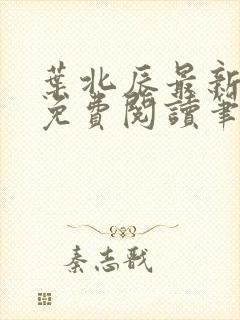 葉北辰最新
免費閱讀筆
秦志戩